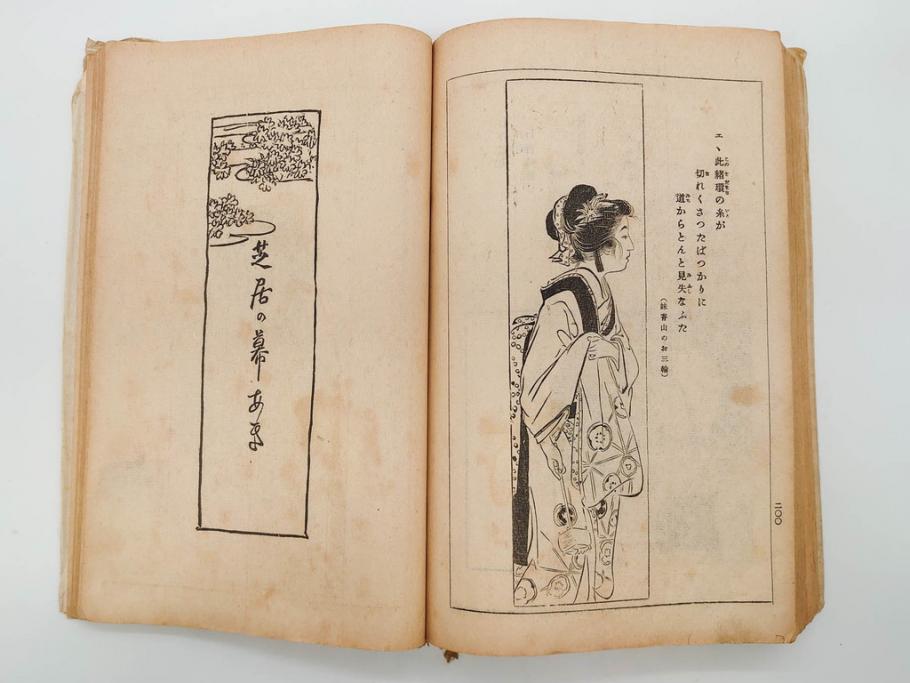 エヽ此緒環の糸が
切れくさつたばつかりに
道からとんと見失なふた
(妹背山のお三輪)
二〇〇
芝居の幕あき